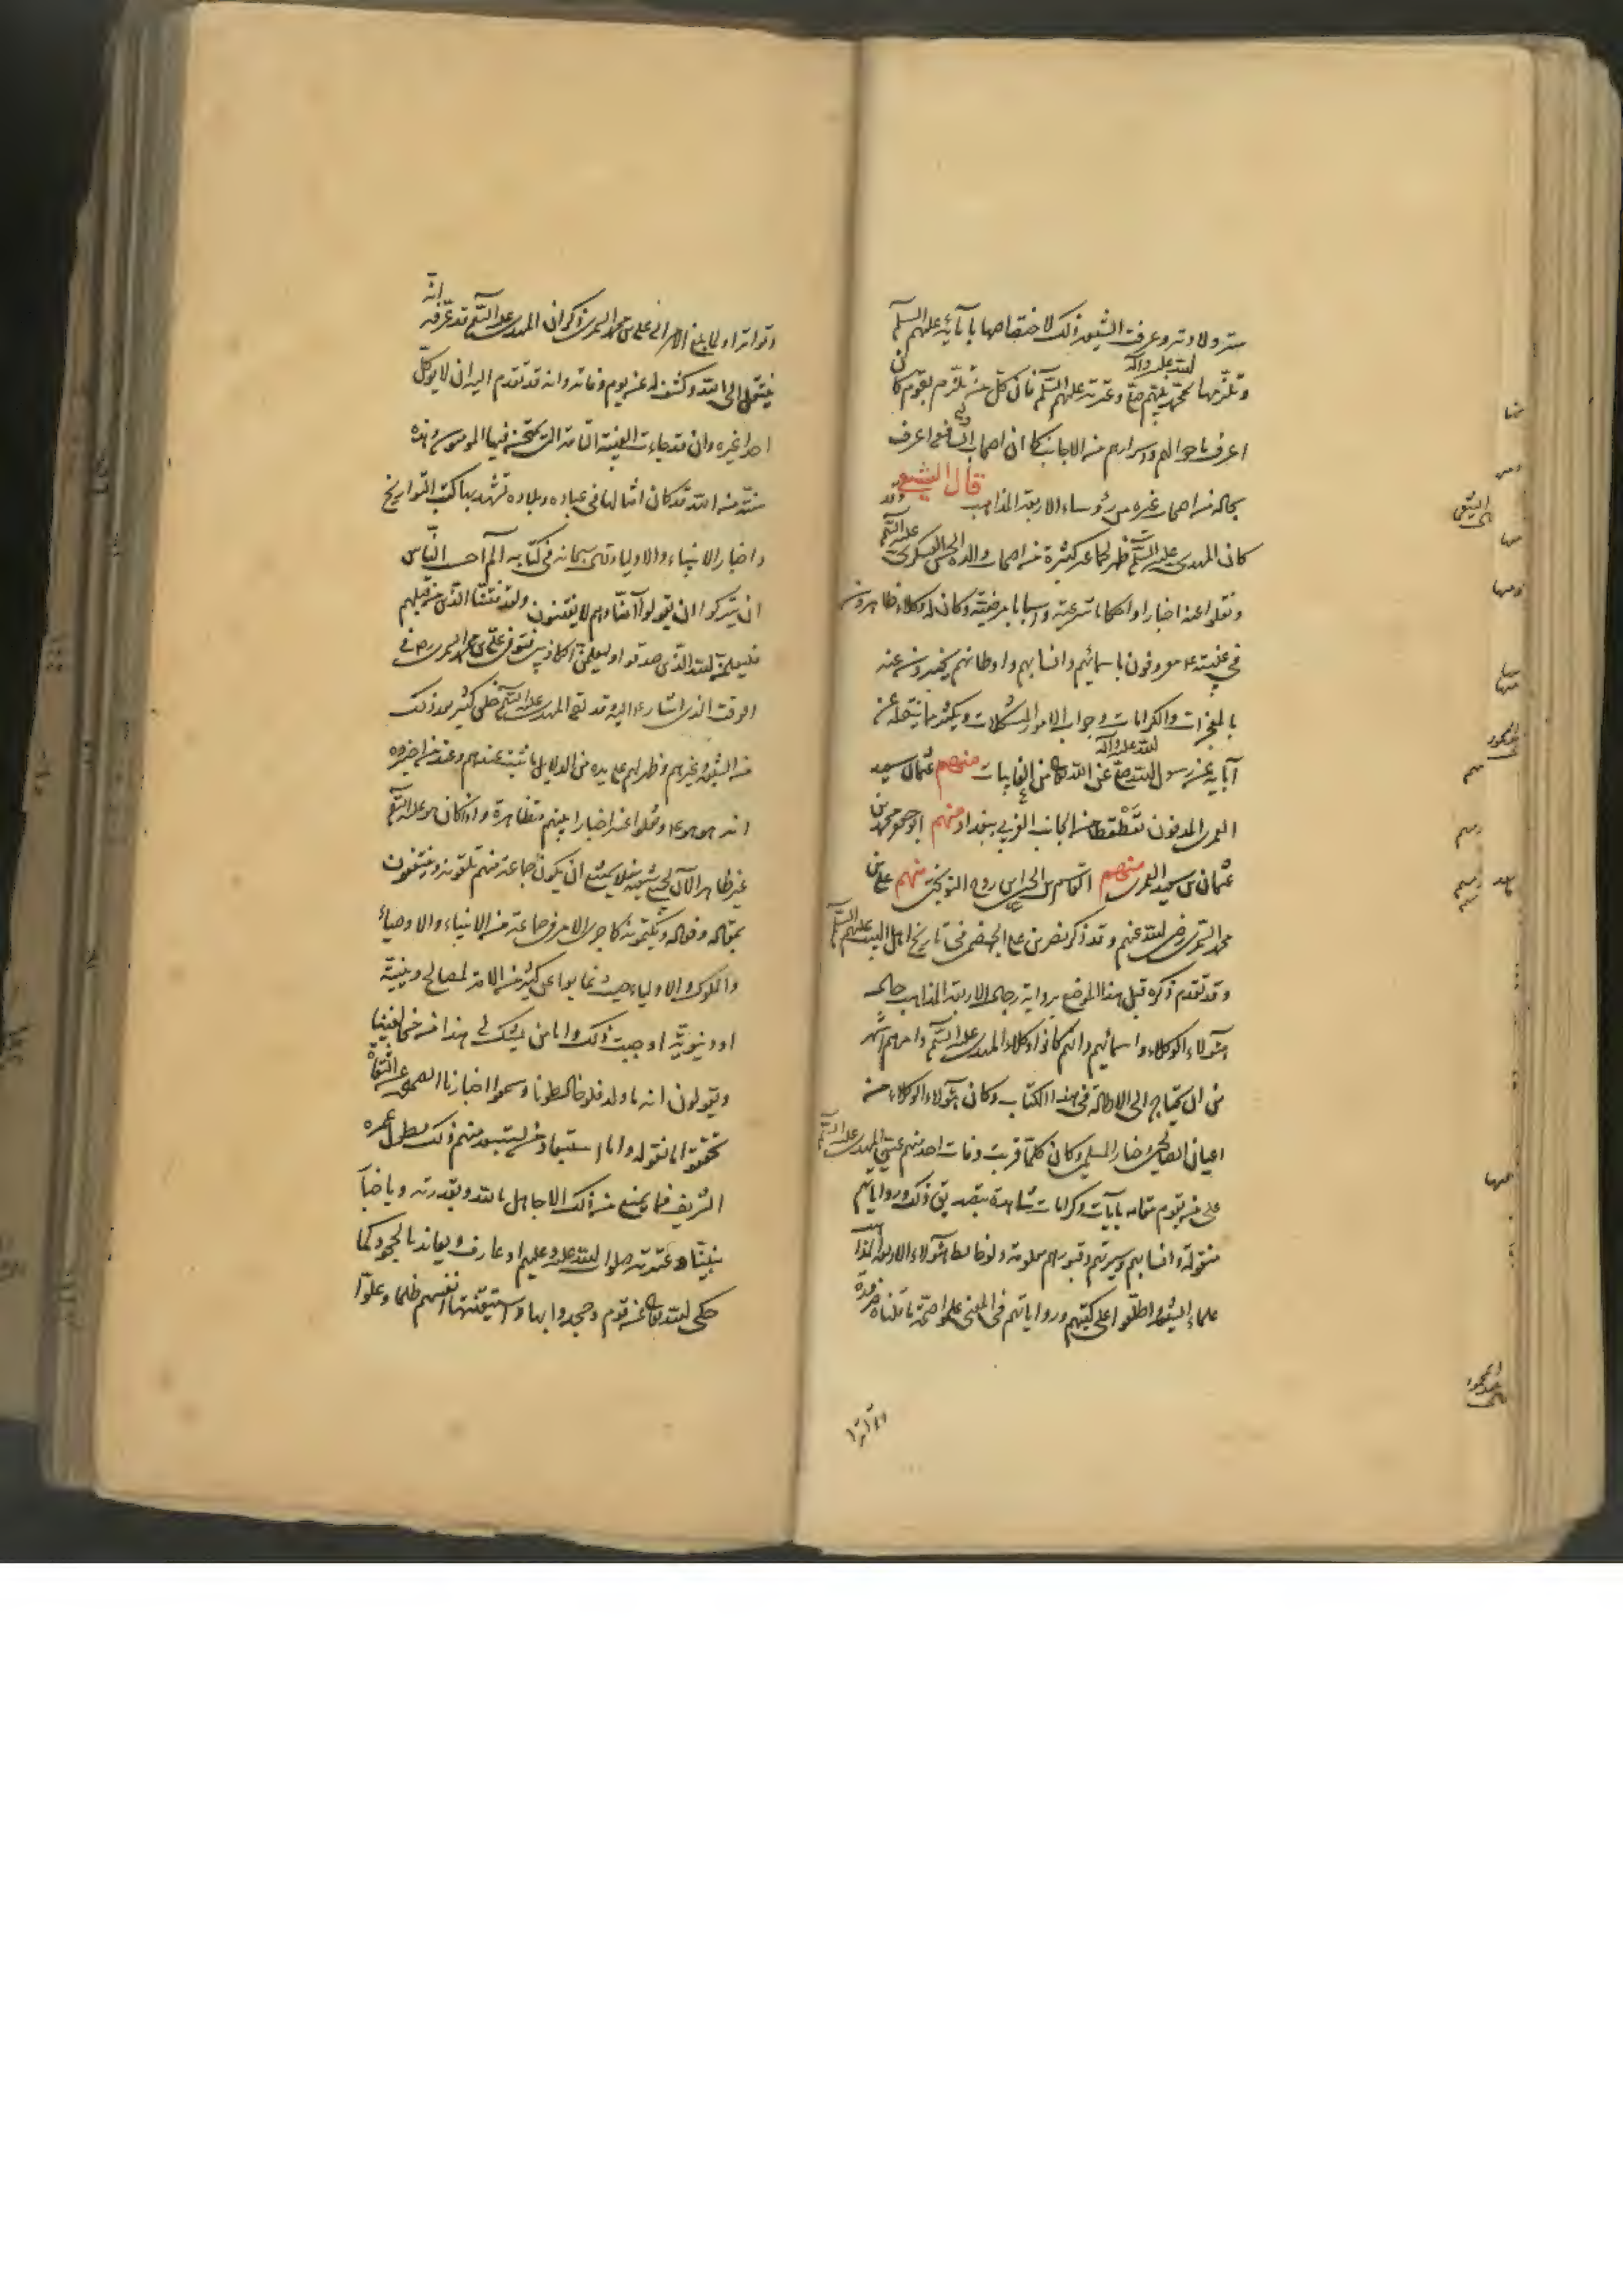 ستر ولادته وعرفت الشيعة ذلك لاختصاصها بآبائه عليهم السلم
وتلزمها بمحمد نبيهم صلى الله عليه وآله وعترته عليهم السلم فان كل من تلزم بقوم كان
اعرف باحوالهم واسرارهم من الاجانب كما ان اصحاب الشافعى اعرف
بحاله من اصحاب غيره من رؤساء الاربعة المذاهب قال الشيعى وقد
كان المهدى عليه السلم ظهر لجماعة كثيرة من اصحاب والده الحسن العسكرى عليه السلم
ونقلوا عنه اخبارا واحكاما شرعية واسبابا مرضية وكان له وكلاء ظاهرون
فى غيبته معروفون باسمائهم وانسابهم واوطانهم يخبرون عنه
بالمعجزات والكرامات وجواب الامور المشكلات وبكثير مما ينقله عن
آبائه عن رسول الله صلى الله عليه وآله عن الله تعالى من الغايبات منهم عثمان بن سعيد
العمرى المدفون بقطقطا من الجانب الغربى ببغداد ومنهم ابو جعفر محمد بن
عثمان بن سعيد العمرى ومنهم ابو القاسم الحسين بن روح النوبختى ومنهم على بن
محمد السمرى رضى الله عنهم وقد ذكر نصر بن على الجهضمى فى تاريخ اهل البيت عليهم السلم
وقد تقدم ذكره قبل هذا الموضع برواية رجال الاربعة المذاهب حال
هؤلاء الوكلاء واسمائهم وانهم كانوا وكلاء المهدى عليه السلم وامرهم اشهر
من ان يحتاج الى الاطالة فى هذا الكتاب وكان هؤلاء الوكلاء من
اعيان الصالحين وخيار المسلمين وكان كلما قربت وفات احد منهم عين المهدى عليه السلم
على من يقوم مقامه بآيات وكرامات شاهدة بتصديق ذلك ورواياتهم
منقولة وانسابهم وسيرتهم وقبورهم معلومة ولو خالط هؤلاء الاربعة المذاهب
علماء الشيعة واطلعوا على كتبهم ورواياتهم فى المعنى علموا صحة ما قلناه ضرورة
وتواترا ولما بلغ الامر الى على بن محمد السمرى ذكر ان المهدى عليه السلم قد عرفه انه
ينتقل الى الله وكشف له عن يوم وفاته وانه قد تقدم اليه ان لا يوكل
احدا غيره وان قد جاءت الغيبة التامة التى يمتحن فيها المؤمنون وهذه
سنة من الله قد كان امثالها فى عباده وبلاده تشهد بها كتب التواريخ
واخبار الانبياء والاولياء وقال سبحانه فى كتابه آلم احسب الناس
ان يتركوا ان يقولوا آمنا وهم لا يفتنون ولقد فتنا الذين من قبلهم
فليعلمن الله الذين صدقوا وليعلمن الكاذبين فتوفى على بن محمد السمرى رض فى
الوقت الذى اشار اليه وقد لقى المهدى عليه السلم خلق كثير بعد ذلك
من الشيعة وغيرهم وظهر لهم على يده من الدلايل ما ثبت عندهم وعند من اخبروه
انه هو هو ونقلوا عنه اخبارا بينهم متظاهرة واذا كان هو عليه السلم
غير ظاهر الآن لجميع شيعته فلا يمتنع ان يكون جماعة منهم تلقونه وينتفعون
بمقاله وفعاله ويكتمونه كما جرى الامر فى جماعة من الانبياء والاوصياء
والملوك والاولياء حيث غابوا عن كثير من الامة لمصالح دينية
او دنيوية اوجبت ذلك واما من يشك فى هذا من مخالفينا
ويقولون انه ما ولد فلو خالطونا وسمعوا اخبارنا الصحيحة عن الثقات
تحققوا ما نقوله واما استبعاد من يستبعد منهم ذلك لطول عمره
الشريف فما يمنع من ذلك الا جاهل بالله وبقدرته وباخبار
نبينا وعترته صلوات الله عليه وعليهم او عارف ويعاند بالجحود كما
حكى الله تعالى عن قوم وجحدوا بها واستيقنتها انفسهم ظلما وعلوا